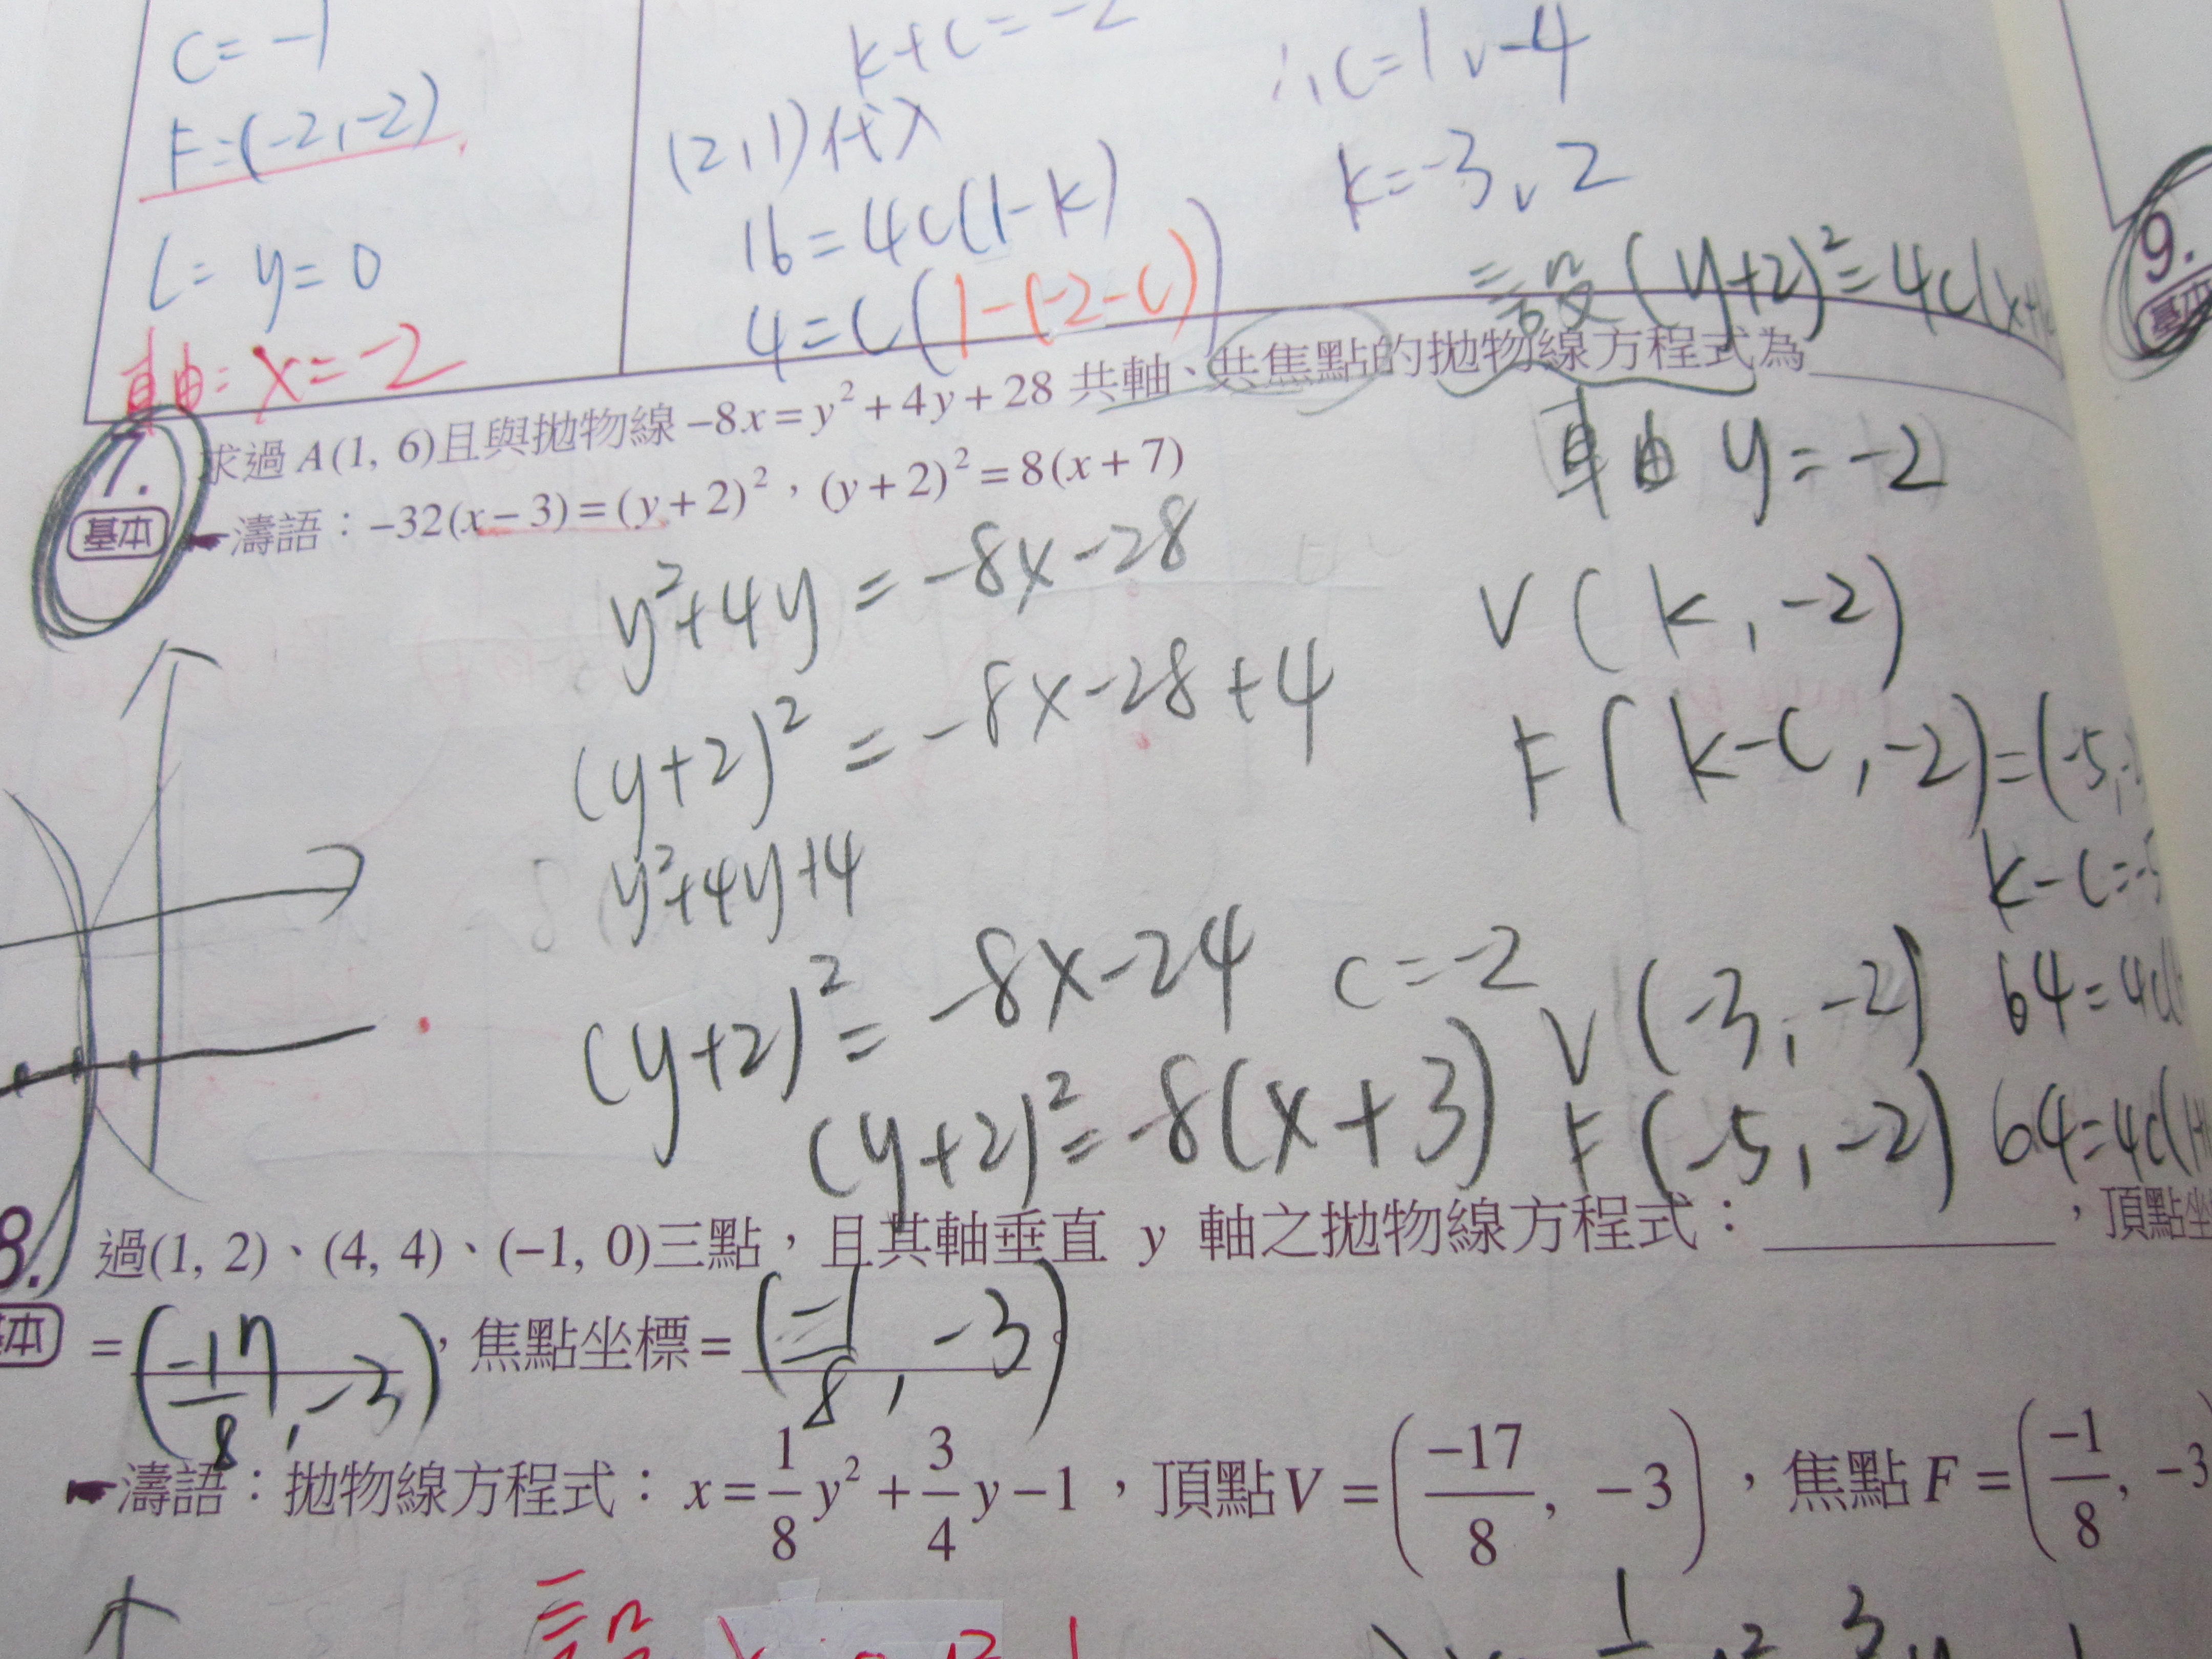 c = -1
F = (-2, -2)
L = y = 0
軸: x = -2
k+c = -2
(2,1)代入
16 = 4c(1-k)
4 = c(1-(-2-c))
∴c=1 v -4
k=-3 v 2
設(y+2)²=4c(x+
7. 求過 A(1, 6)且與拋物線 -8x = y² + 4y + 28 共軸、共焦點的拋物線方程式為
基本
濤語：-32(x-3) = (y+2)²，(y+2)² = 8(x+7)
軸 y = -2
y²+4y = -8x-28
V(k, -2)
(y+2)² = -8x-28+4
F(k-c, -2)=(-5,-
y²+4y+4
k-c=-5
(y+2)² = -8x-24
c=-2
V(-3, -2)
64=4c(
(y+2)² = -8(x+3)
F(-5, -2)
64=4c(1+
9.
基本
8. 過(1, 2)、(4, 4)、(-1, 0)三點，且其軸垂直 y 軸之拋物線方程式：，頂點坐
基本
= (-17/8, -3)，焦點坐標 = (-1/8, -3)。
濤語：拋物線方程式：x = 1/8 y² + 3/4 y - 1，頂點V = (-17/8, -3)，焦點F = (-1/8, -3
設